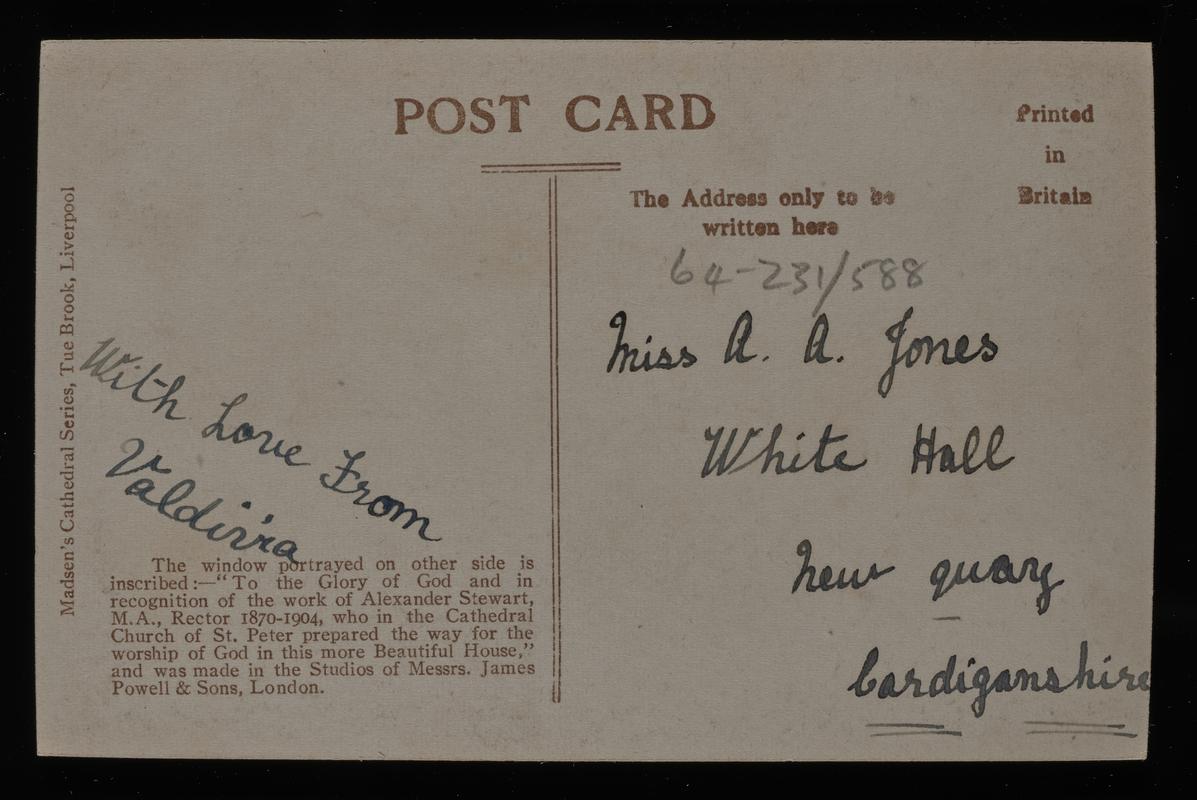 POST CARD
Printed
in
Britain
The Address only to be
written here
64-231/588
Miss A. A. Jones
White Hall
New quay
Cardiganshire
Madsen's Cathedral Series, Tue Brook, Liverpool
With Love From
Valdivia
The window portrayed on other side is
inscribed:—"To the Glory of God and in
recognition of the work of Alexander Stewart,
M.A., Rector 1870-1904, who in the Cathedral
Church of St. Peter prepared the way for the
worship of God in this more Beautiful House,"
and was made in the Studios of Messrs. James
Powell & Sons, London.